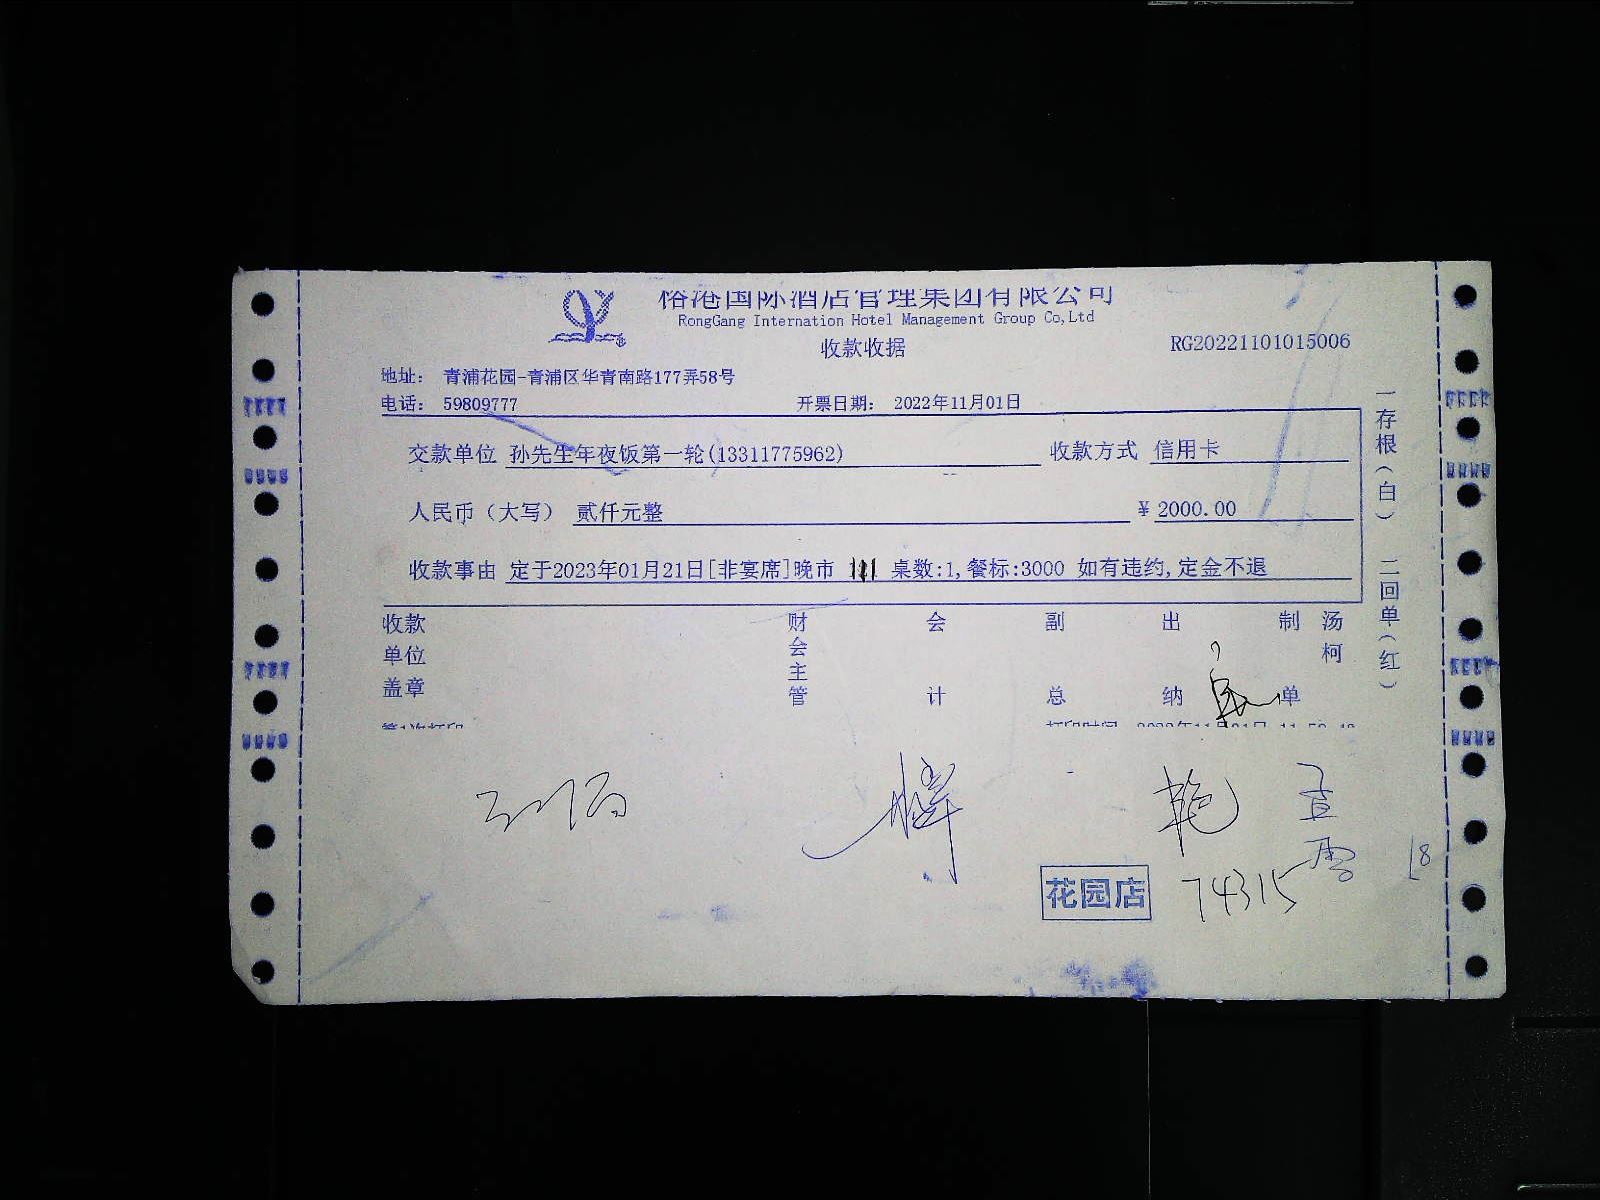 榕港国际酒店管理集团有限公司
RongGang Internation Hotel Management Group Co,Ltd
收款收据
RG20221101015006
地址： 青浦花园-青浦区华青南路177弄58号
电话： 59809777 开票日期： 2022年11月01日
交款单位 孙先生年夜饭第一轮(13311775962) 收款方式 信用卡
人民币（大写） 贰仟元整 ¥ 2000.00
收款事由 定于2023年01月21日[非宴席]晚市 桌数:1,餐标:3000 如有违约,定金不退
收款单位盖章 财会主管 会计 副总 出纳 制单 汤柯
第1次打印 打印时间 2022年11月01日
一存根（白） 二回单（红）
艳
花园店
74315
18